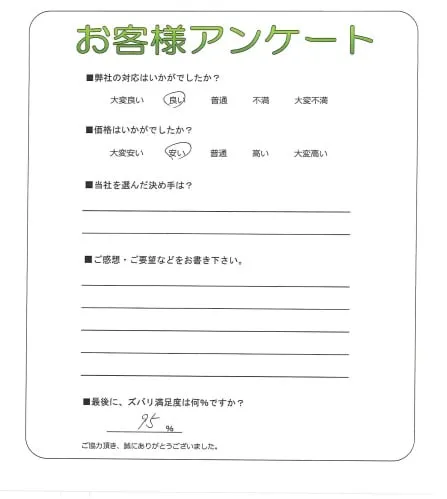 お客様アンケート
■弊社の対応はいかがでしたか？
大変良い 良い 普通 不満 大変不満
■価格はいかがでしたか？
大変安い 安い 普通 高い 大変高い
■当社を選んだ決め手は？
■ご感想・ご要望などをお書き下さい。
■最後に、ズバリ満足度は何%ですか？
95 %
ご協力頂き、誠にありがとうございました。